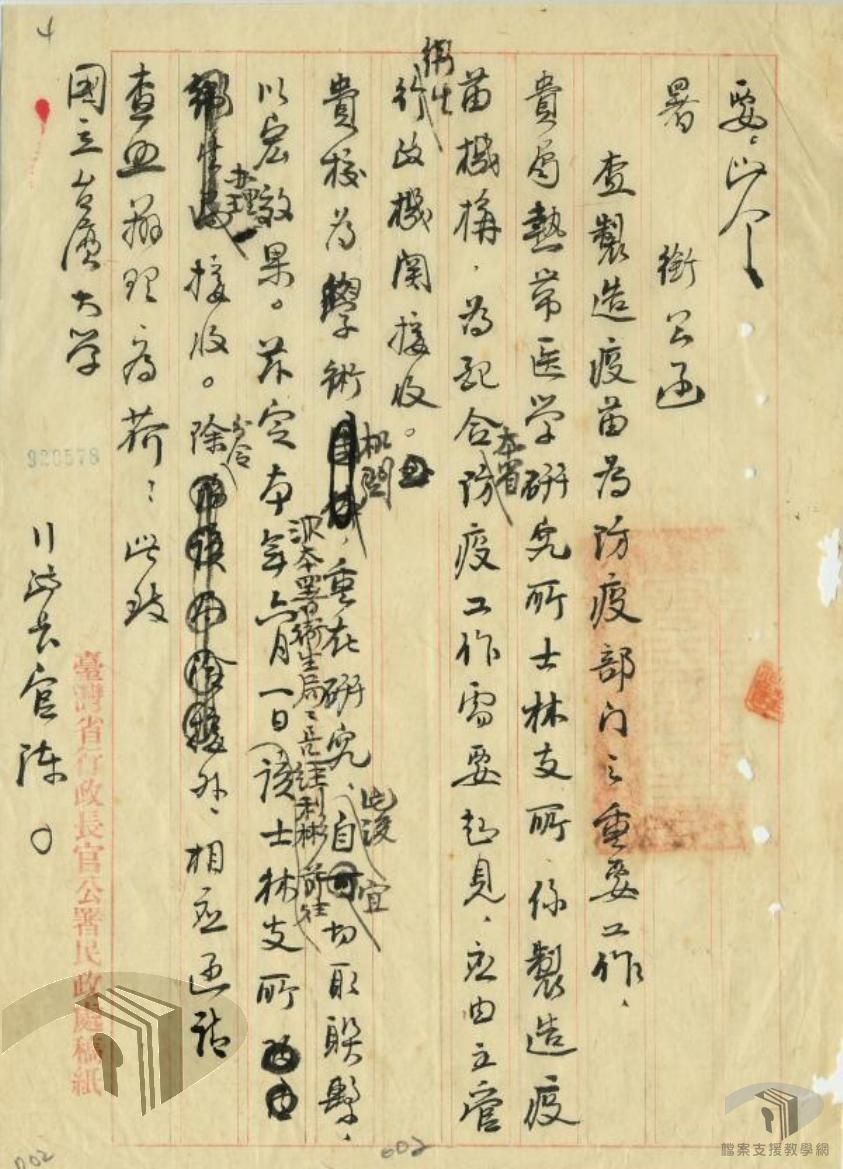 要。此令
署　銜公函
查製造疫苗為防疫部门之重要工作、
貴局熱帯医学研究所士林支所、係製造疫
苗機構、為配合本省防疫工作需要起見、应由主管
衛生行政機関接收。
貴校為學術机関、重在研究、此後自宜切取联繫、
以宏效果。茲定本年六月一日派本署衛生局局長經利彬前往該士林支所
办理接收。除分令外、相应函請
查照辦理為荷：此致
國立台灣大学
行政長官陳〇
臺灣省行政長官公署民政處稿紙
4
920578
002
002
檔案支援教學網